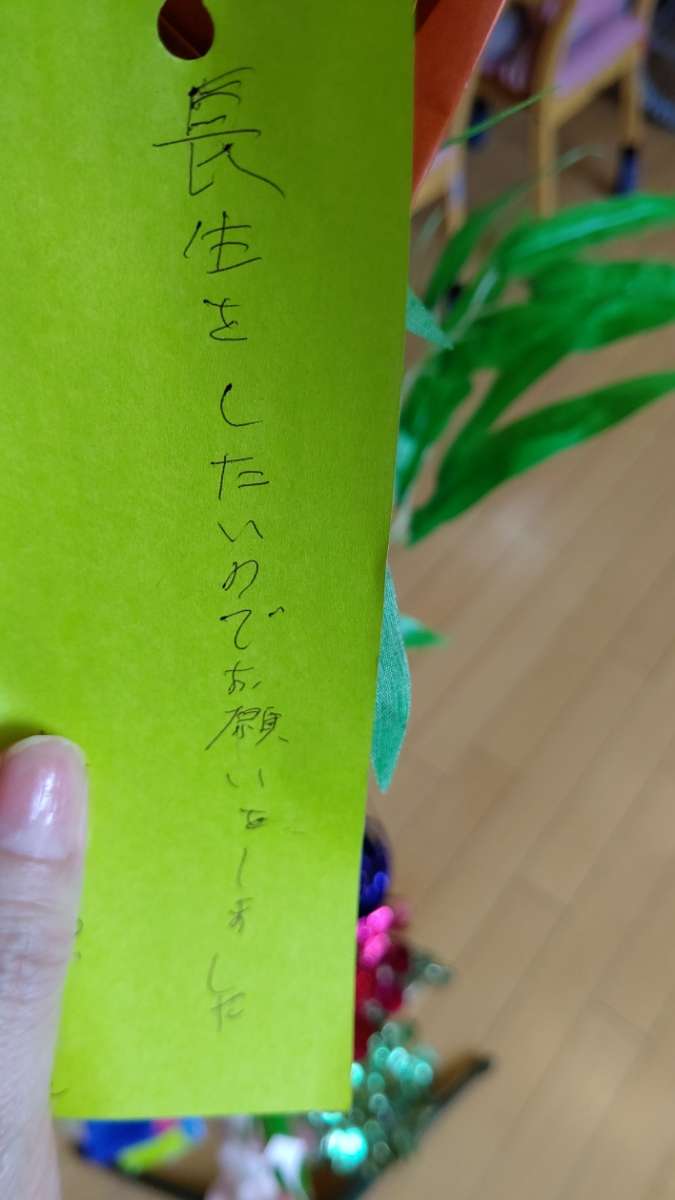 長生をしたいのでお願いをしました